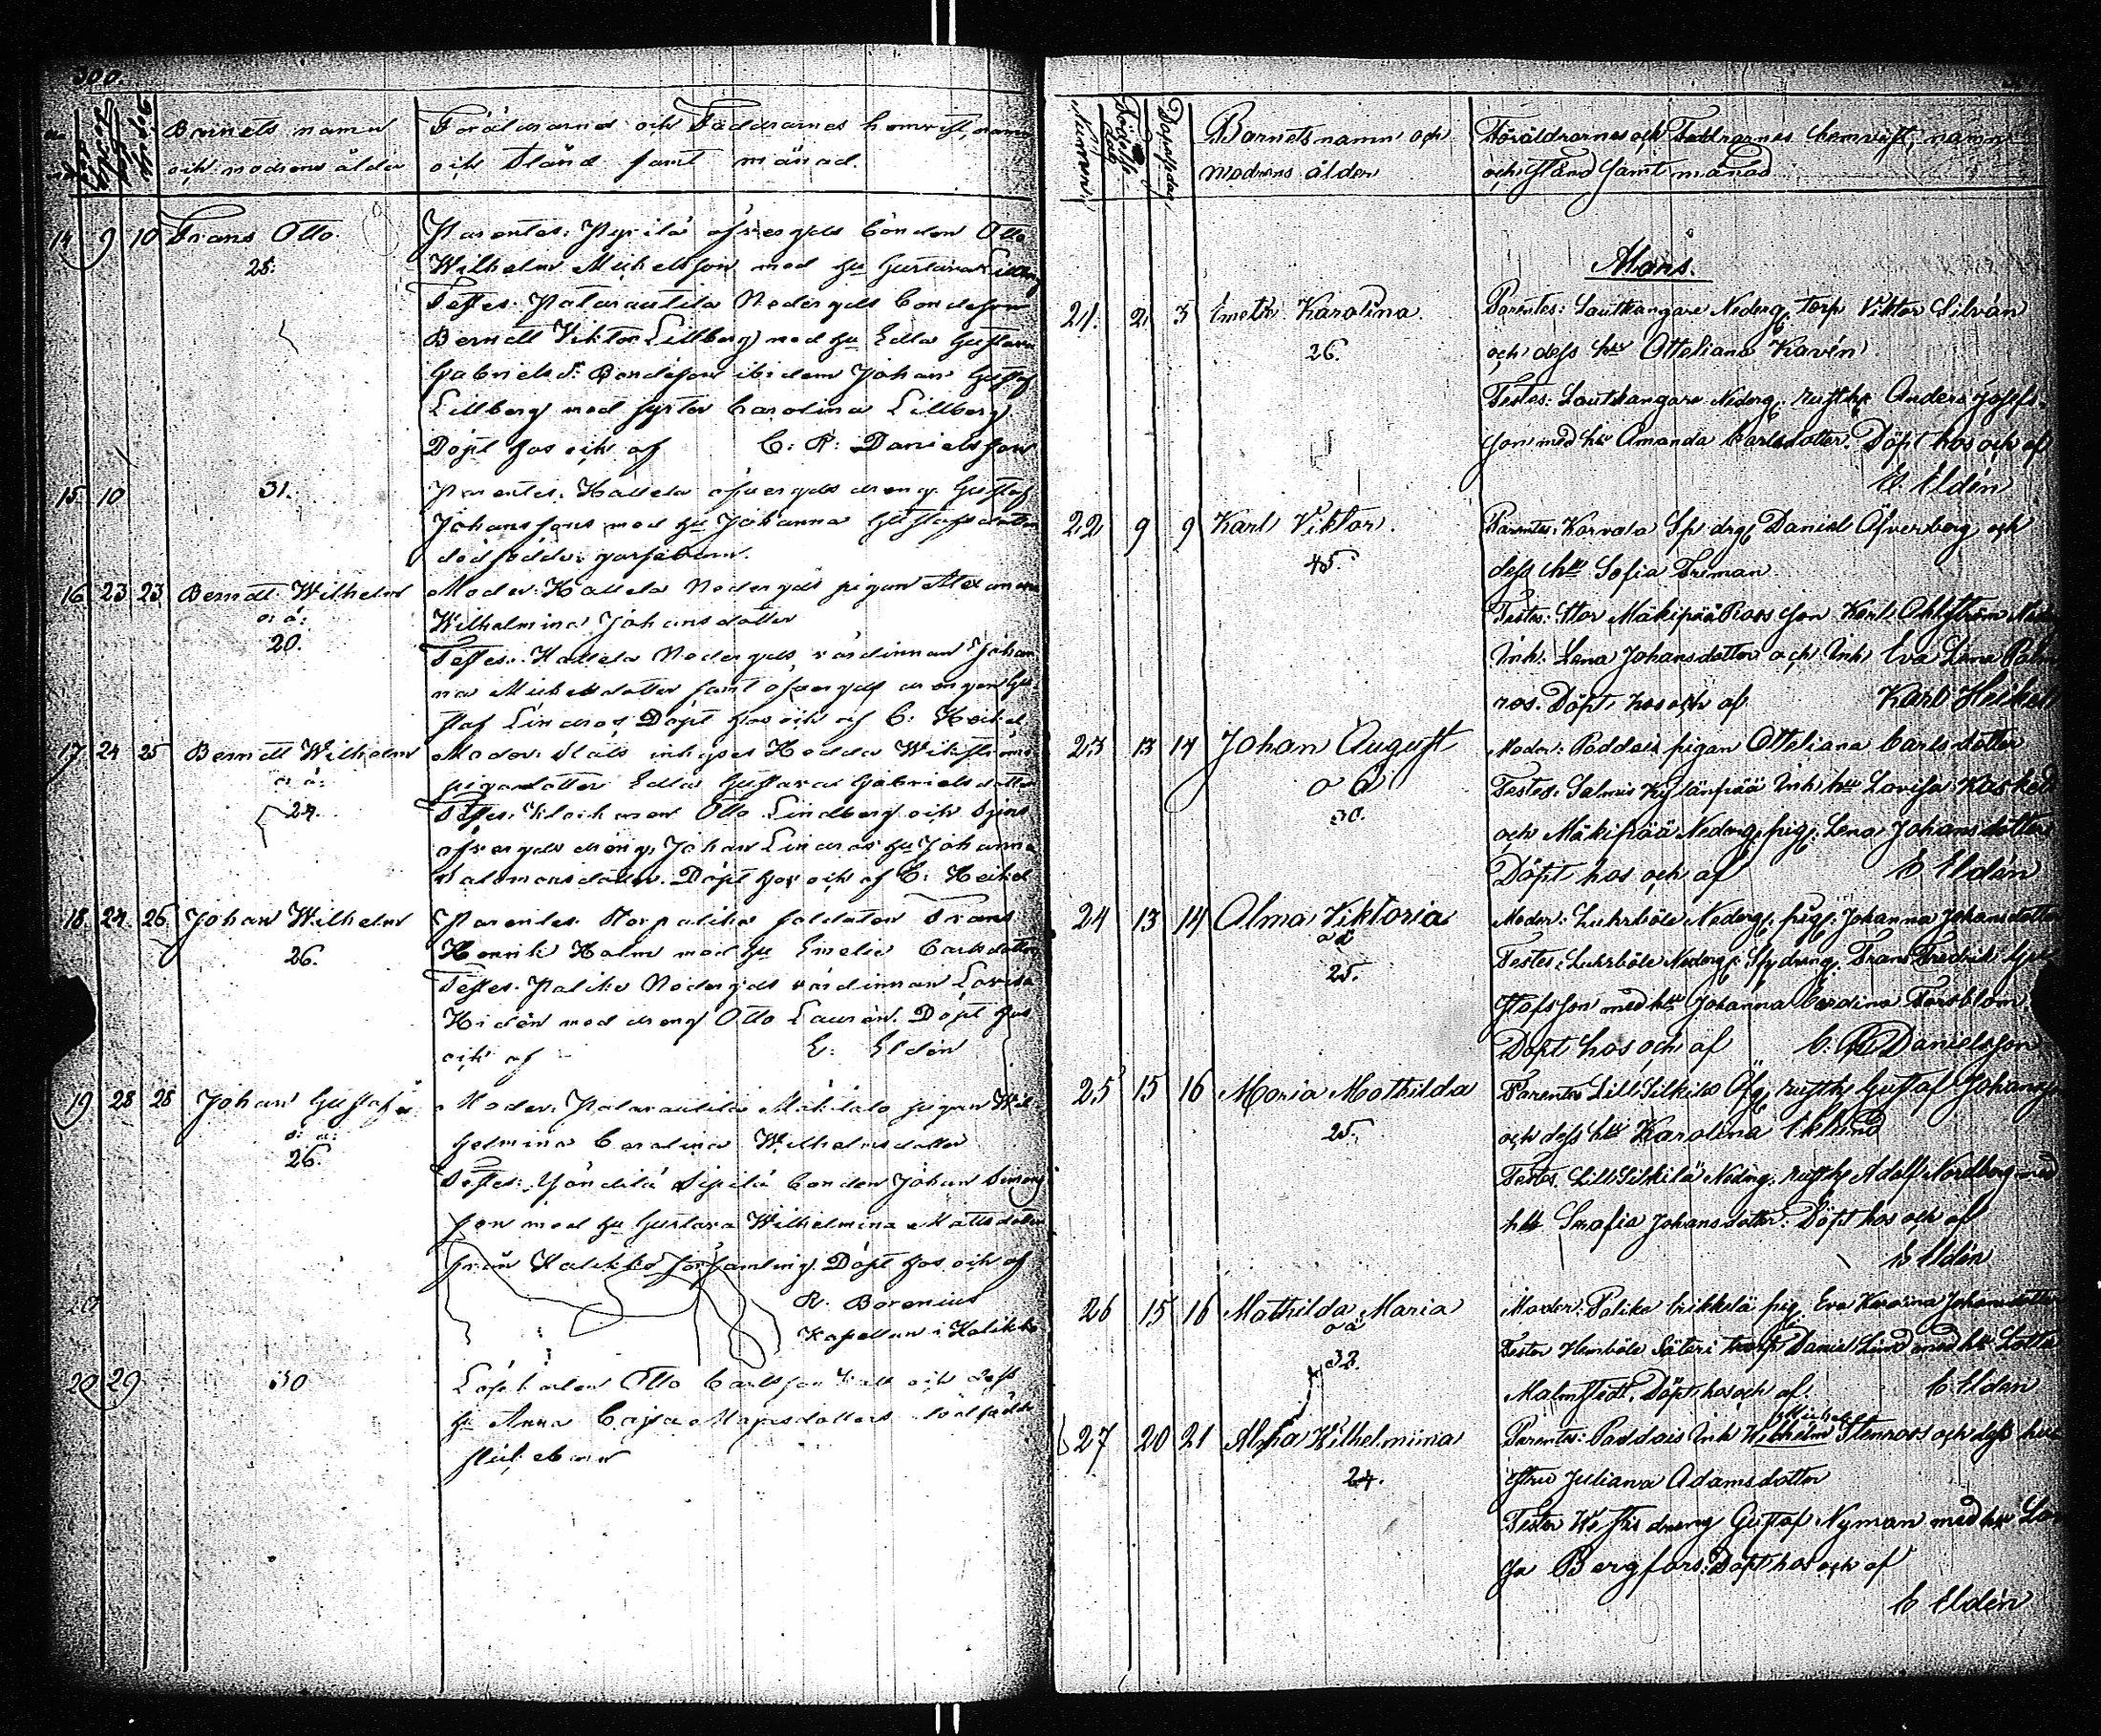 300.
Barnets namn
och modrens ålder
Föräldrarnes och Faddrarnes hemvist, namn
och stånd samt månad.
14 9 10 Frans Otto.
25.
Parentes: Pyrilä öfvergds bonden Otto
Wilhelm Michelsson med hu Gustava
Testes: Patarautila Nedergds bondeson
Berndt Viktor Lillberg med hu Edla Gustava
Gabrielsd:r Bondeson ibidem Johan Gustaf
Lillberg med syster Carolina Lillberg
Döpt hos och af C: R: Danielsson
15. 10 31.
Parentes. Kallela öfvergds dreng Gustaf
Johanssons med hu Johanna Gustafsdotter
dödfödde gossebarn.
16. 23 23 Berndt Wilhelm
o: ä:
20.
Moder: Kallela Nedergds pigan Alexandra
Wilhelmina Johansdotter
Testes: Kallela Nedergds värdinnan Johan
na Michelsdotter samt öfvergds drengen Gu
staf Lindros Döpt hos och af C: Heikel
17. 24 25 Berndt Wilhelm
o: ä:
24.
Moder: Ståls inhyses Hedda Wikströms
pigan dotter Edla Gustava Gabrielsdotter
Testes. Klockaren Otto Lindberg och
öfvergds dreng Johan Lindros hu Johanna
Salomonsdotter. Döpt hos och af C: Heikel
18. 24. 26 Johan Wilhelm
26.
Parentes Storpalika soldaten Frans
Henrik Holm med hu Emelie Carlsdotter
Testes. Palike Nedergds värdinnan Lovisa
Hidén med dreng Otto Laurén. Döpt hos
och af E: Eldén
19 28 28 Johan Gustaf
o: ä:
26.
Moder. Patarautila Mäkilalo pigan Wil
helmina Carolina Wilhelmsdotter
Testes: Yöntilä Sipilä bonden Johan Simons
son med hu Gustava Wilhelmina Mattsdotter
från Halikko församling. Döpt hos och af
R. Borenius
Kapellan i Halikko
20 29 30
Löpkarlen Otto Carlsson och dess
hu Anna Cajsa Mattsdotters dödfödde
flickebarn
Nummer
Födelsedag
Dopelsedag
Barnets namn och
Modrens ålder
Föräldrarnes och Faddrarnes hemvist, namn
och stånd samt månad
Mars.
21. 2 3 Emelie Karolina
26.
Parentes: Lautkangare Nederg. torp Viktor Silvén
och dess hu Otteliana Kavén
Testes: Lautkangare Nederg. rusth Anders Josefs-
son med hu Amanda Carlsdotter. Döpt hos och af
E. Eldén
22 9 9 Karl Viktor.
45.
Parentes: Karvala Sp drg Daniel Öfverberg och
dess hu Sofia Friman
Testes: Stor Mäkipää Roos son Karl Ahlström
Inh. Lena Johansdotter och Inh Eva Lena Palm
ros. Döpt hos och af Karl Heikel
23 13 14 Johan August
o ä
30.
Moder: Paddais pigan Otteliana Carlsdotter
Testes. Salmis Kylänpää Inh hu Lovisa
och Mäkipää Nederg. pig. Lena Johansdotter
Döpt hos och af E Eldén
24 13 14 Alma Viktoria
o ä
25.
Moder: Luhrböle Nederg. pig. Johanna Johansdotter
Testes: Luhrböle Nederg. Stydreng. Frans Fredrik Gu
stafsson med hu Johanna Carolina Forsblom.
Döpt hos och af C. R Danielsson
25 15 16 Maria Mathilda
25.
Parentes Lill Silkilä Öfg. rusth Gustaf Johansson
och dess hu Karolina Eklund
Testes. Lill Silkilä Nederg. rusth Adolf Nordberg med
hu Serafia Johansdotter. Döpt hos och af
E Eldén
26 15 16 Mathilda Maria
o ä
32.
Moder: Palike Erikkelä pig. Eva Karoina Johansdotter
Testes Hemböle Säteri torp Daniel Lind med hu Lotta
Malmstedt. Döpt hos och af. E Eldén
27 20 21 Alma Wilhelmina
24.
Parentes: Paddais Inh Wilhelm Stenroos och dess hu
stru Juliana Adamsdotter
Testes dreng Gustaf Nyman med hu Lo
sa Bergfors. Döpt hos och af
E Eldén